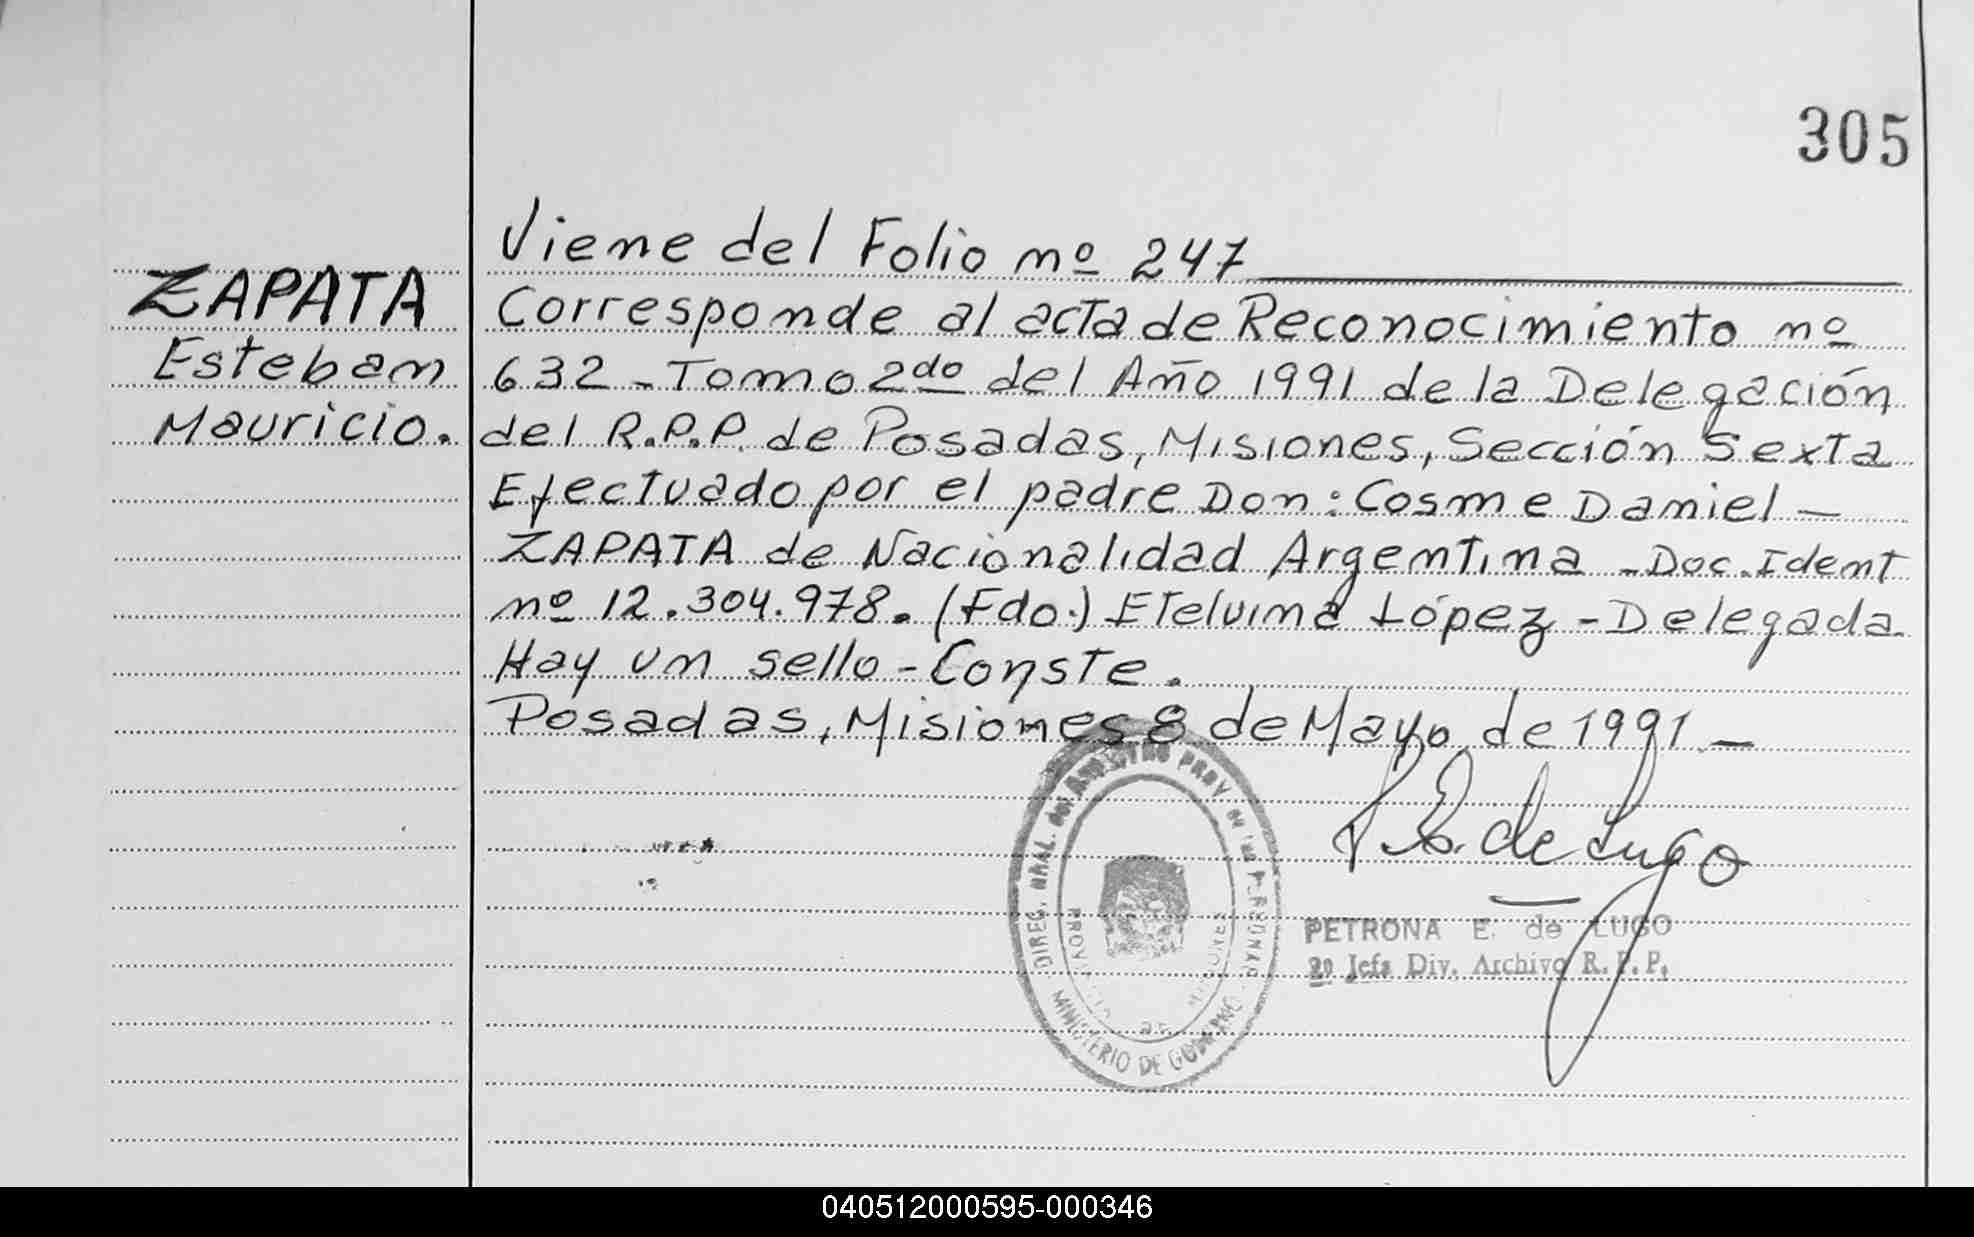 305
ZAPATA
Esteban
Mauricio.
Viene del Folio nº 247
Corresponde al acta de Reconocimiento nº
632 - Tomo 2do del Año 1991 de la Delegación
del R.P.P. de Posadas, Misiones, Sección Sexta
Efectuado por el padre Don: Cosme Daniel -
ZAPATA de Nacionalidad Argentina - Doc. Ident
nº 12.304.978. (Fdo.) Etelvina López - Delegada
Hay un sello - Conste.
Posadas, Misiones 8 de Mayo de 1991 -
P. E. de Lugo
PETRONA E. de LUGO
2º Jefa Div. Archivo R. P. P.
DIREC. GRAL. del REGISTRO PROV. de las PERSONAS
PROVINCIA DE MISIONES
MINISTERIO DE GOBIERNO
040512000595-000346